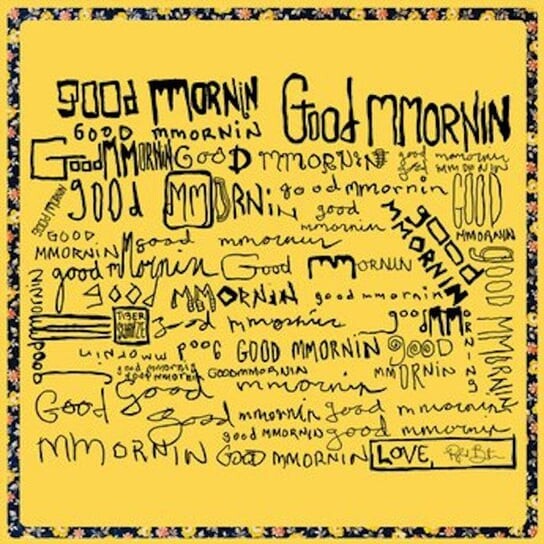 good MMORNiN Good MMORNIN
GOOD MMORNiN
Good MMORNiN GooD MMORNiN good mmornin
good MMORNIN
good MMORNiN good mmornin GOOD MMORNIN
good mmornin
good mmornin
GOOD MMORNIN good mmornin good MMORNIN
good mmornin Good MMORNIN good MMORNIN
gOOd MMORNIN good mmornin
goodmmornin
TYGER
good mmornin good MMORNING
good mmornin GOOD MMORNIN gOOD MMORNIN
good mmornin
good mmornin GOODMMORNIN
Good Good mmornin
good mmornin good mmornin
good MMORNIN good mmornin
MMORNIN Good MMORNIN LOVE,